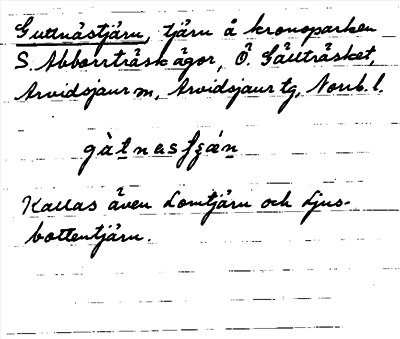 Guttnästjärn, tjärn å kronoparken
S. Abborrträskågor, Ö. Gällträsket,
Arvidsjaur m, Arvidsjaur tg, Norrb. l.
Kallas även Lomtjärn och Ljus-
bottentjärn.